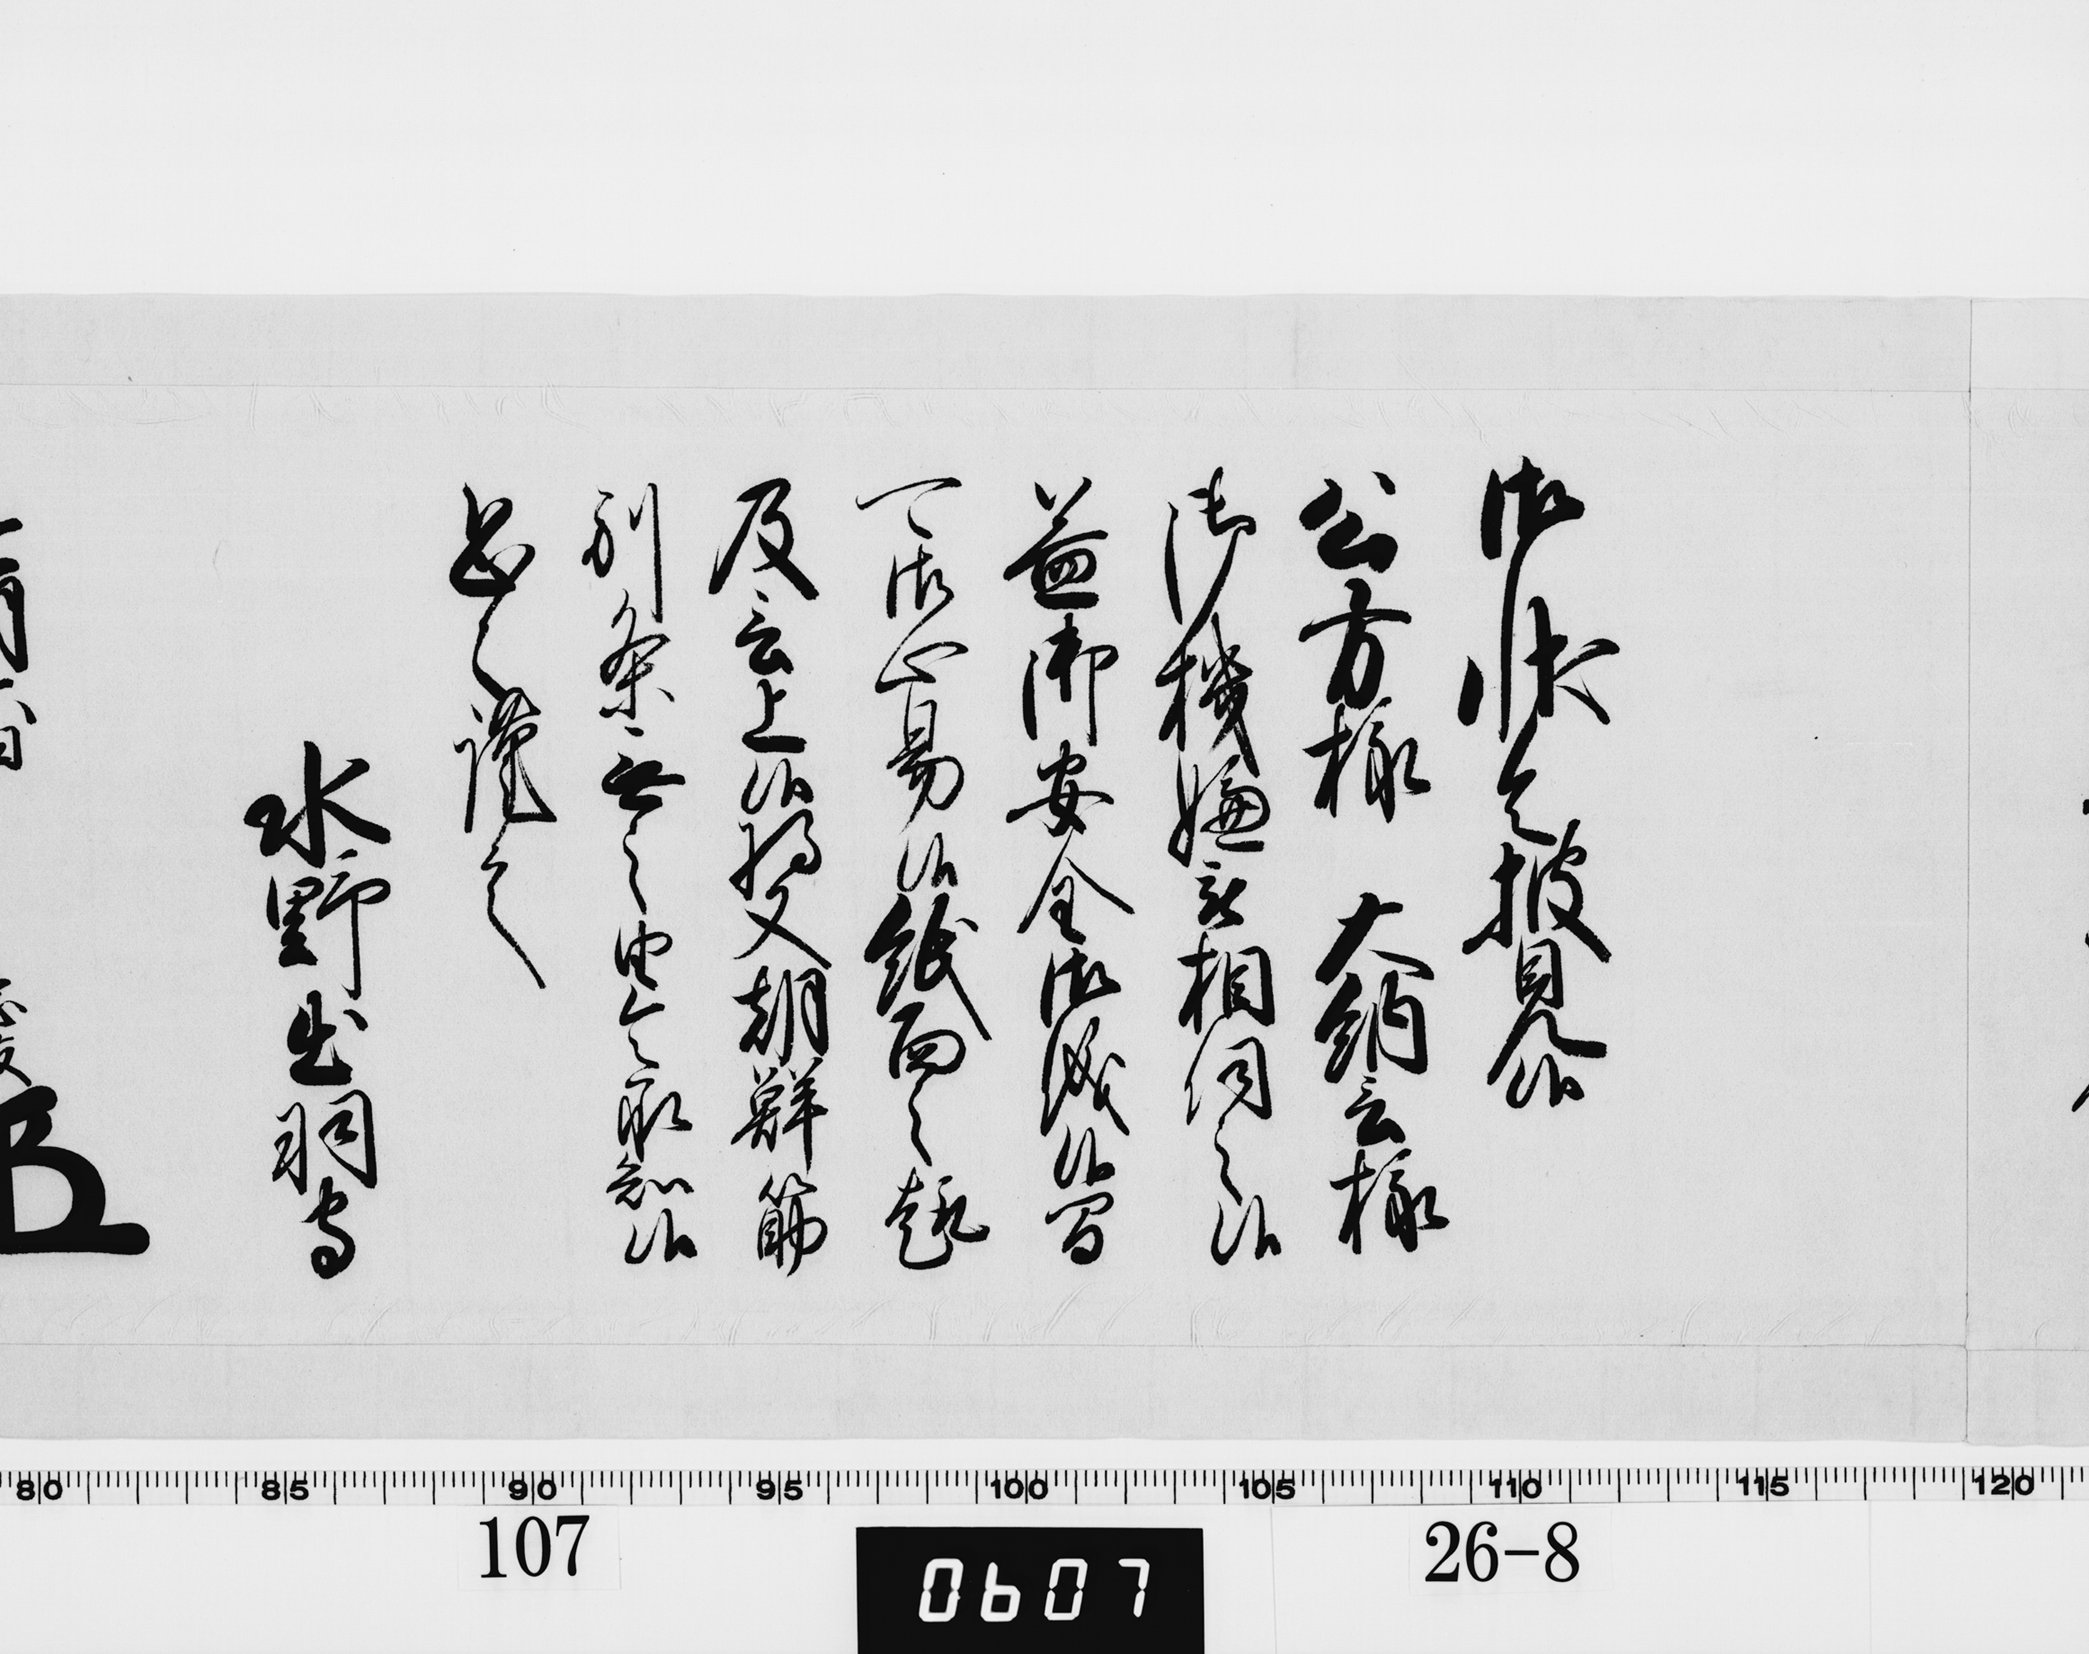 御状令披見候
公方様　大納言様
御機嫌被相伺之候
益御安全御儀候間
可御心易候紙面之趣
及言上候将又朝鮮筋
別条無之由令承知候
恐々謹言
水野出羽守
80 85 90 95 100 105 110 115 120
107
0607
26-8